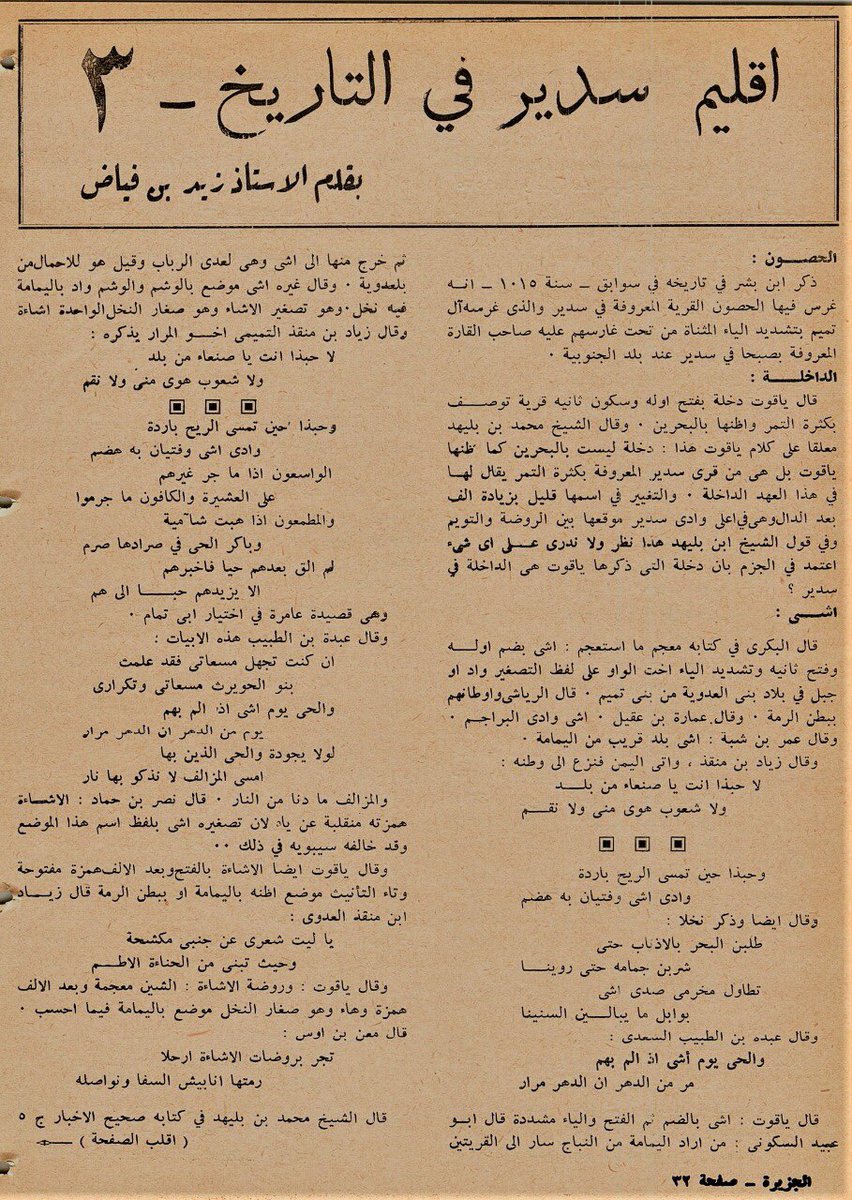 اقليم سدير في التاريخ - ٣
بقلم الاستاذ زيد بن فياض
الحصون :
ذكر ابن بشر في تاريخه في سوابق - سنة ١٠١٥ - انه
غرس فيها الحصون القرية المعروفة في سدير والذى غرسه آل
تميم بتشديد الياء المثناة من تحت غارسهم عليه صاحب القارة
المعروفة بصبحا في سدير عند بلد الجنوبية ٠
الداخلة :
قال ياقوت دخلة بفتح اوله وسكون ثانيه قرية توصف
بكثرة التمر واظنها بالبحرين ٠ وقال الشيخ محمد بن بليهد
معلقا على كلام ياقوت هذا : دخلة ليست بالبحرين كما ظنها
ياقوت بل هى من قرى سدير المعروفة بكثرة التمر يقال لها
في هذا العهد الداخلة ٠ والتغيير في اسمها قليل بزيادة الف
بعد الدال وهى في اعلى وادى سدير موقعها بين الروضة والتويم
وفي قول الشيخ ابن بليهد هذا نظر ولا ندرى على اى شىء
اعتمد في الجزم بان دخلة التى ذكرها ياقوت هى الداخلة في
سدير ؟
اشى :
قال البكرى في كتابه معجم ما استعجم : اشى بضم اوله
وفتح ثانيه وتشديد الياء اخت الواو على لفظ التصغير واد او
جبل في بلاد بنى العدوية من بنى تميم ٠ قال الرياشى واوطانهم
ببطن الرمة ٠ وقال عمارة بن عقيل ٠ اشى وادى البراجم ٠
وقال عمر بن شبة : اشى بلد قريب من اليمامة ٠
وقال زياد بن منقذ ، واتى اليمن فنزع الى وطنه :
لا حبذا انت يا صنعاء من بلد
ولا شعوب هوى منى ولا نقم
وحبذا حين تمسى الريح باردة
وادى اشى وفتيان به هضم
وقال ايضا وذكر نخلا :
طلبن البحر بالاذناب حتى
شربن جمامه حتى روينا
تطاول مخرمى صدى اشى
بوابل ما يبالين السنينا
وقال عبده بن الطبيب السعدى :
والحى يوم أشى اذ الم بهم
مر من الدهر ان الدهر مرار
قال ياقوت : اشى بالضم ثم الفتح والياء مشددة قال ابو
عبيد السكونى : من اراد اليمامة من النباج سار الى القريتين
ثم خرج منها الى اشى وهى لعدى الرباب وقيل هو للاحمال من
بلعدوية ٠ وقال غيره اشى موضع بالوشم والوشم واد باليمامة
فيه نخل ٠ وهو تصغير الاشاء وهو صغار النخل الواحدة اشاءة
وقال زياد بن منقذ التميمى اخو المرار يذكره :
لا حبذا انت يا صنعاء من بلد
ولا شعوب هوى منى ولا نقم
وحبذا حين تمسى الريح باردة
وادى اشى وفتيان به هضم
الواسعون اذا ما جر غيرهم
على العشيرة والكافون ما جرموا
والمطعمون اذا هبت شآمية
وباكر الحى في صرادها صرم
لم الق بعدهم حيا فاخبرهم
الا يزيدهم حبا الى هم
وهى قصيدة عامرة في اختيار ابى تمام ٠
وقال عبدة بن الطبيب هذه الابيات :
ان كنت تجهل مسعاتى فقد علمت
بنو الحويرث مسعاتى وتكرارى
والحى يوم اشى اذ الم بهم
يوم من الدهر ان الدهر مرار
لولا يجودة والحى الذين بها
امسى المزالف لا نذكو بها نار
والمزالف ما دنا من النار ٠ قال نصر بن حماد : الاشاءة
همزته منقلبة عن ياء لان تصغيره اشى بلفظ اسم هذا الموضع
وقد خالفه سيبويه في ذلك ٠٠
وقال ياقوت ايضا الاشاءة بالفتح وبعد الالف همزة مفتوحة
وتاء التأنيث موضع اظنه باليمامة او ببطن الرمة قال زياد
ابن منقذ العدوى :
يا ليت شعرى عن جنبى مكشحة
وحيث تبنى من الحناءة الاطم
وقال ياقوت : وروضة الاشاءة : الشين معجمة وبعد الالف
همزة وهاء وهو صغار النخل موضع باليمامة فيما احسب ٠
قال معن بن اوس :
تجر بروضات الاشاءة ارحلا
رمتها انابيش السفا ونواصله
قال الشيخ محمد بن بليهد في كتابه صحيح الاخبار ج ٥
( اقلب الصفحة )
الجزيرة - صفحة ٣٢